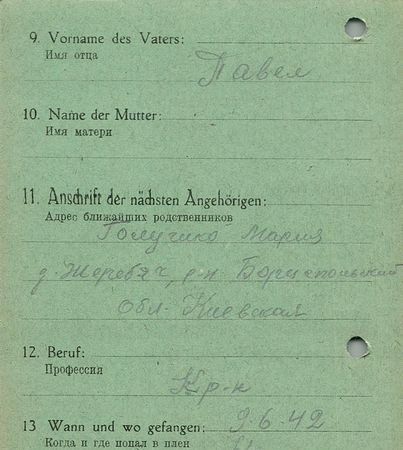 9. Vorname des Vaters:
Имя отца
Павел
10. Name der Mutter:
Имя матери
11. Anschrift der nächsten Angehörigen:
Адрес ближайших родственников
Мария
д. р-н Бориспольский
Обл. Киевская
12. Beruf:
Профессия
Кр-н
13 Wann und wo gefangen: 9.6.42
Когда и где попал в плен